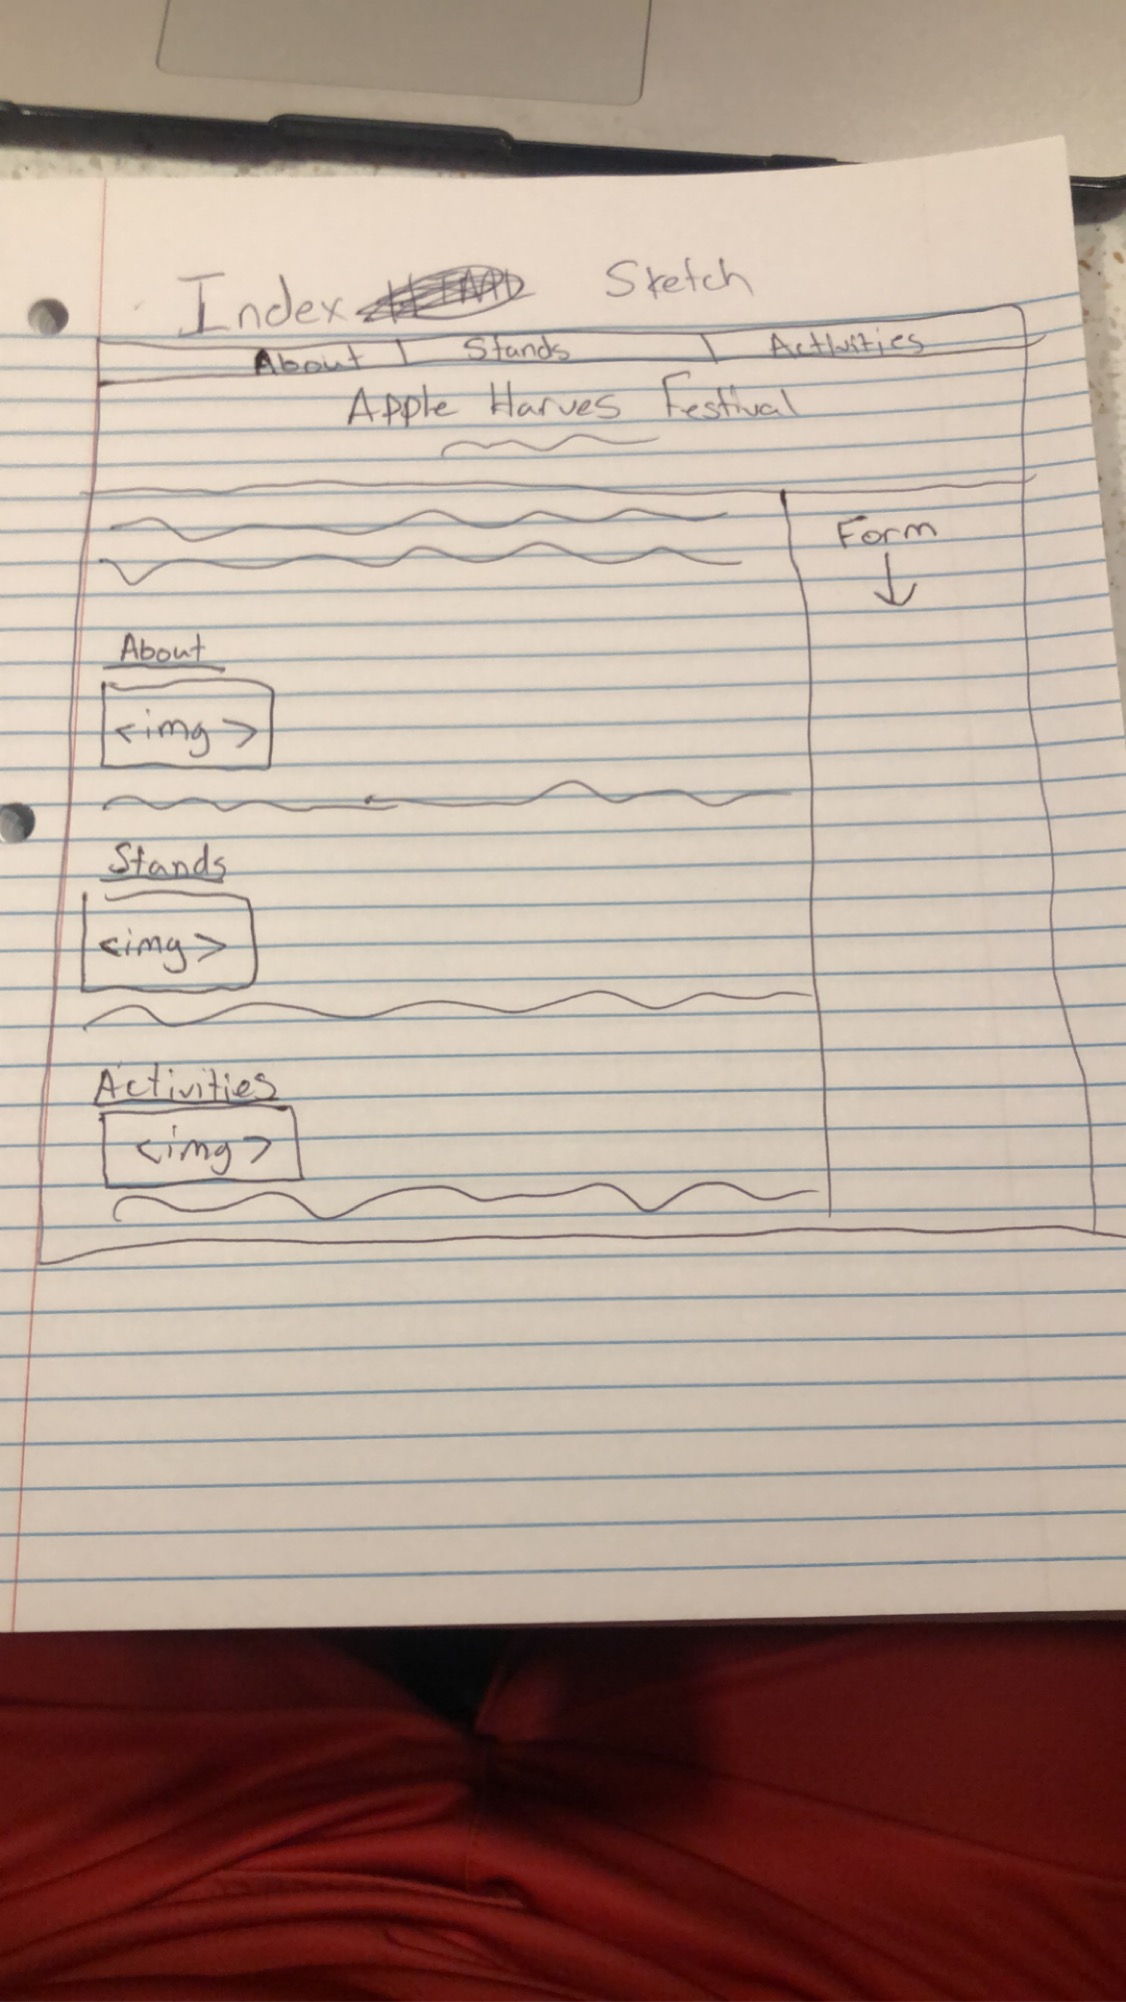 Index Sketch
About Stands Activities
Apple Harves Festival
Form
About
<img>
Stands
<img>
Activities
<img>